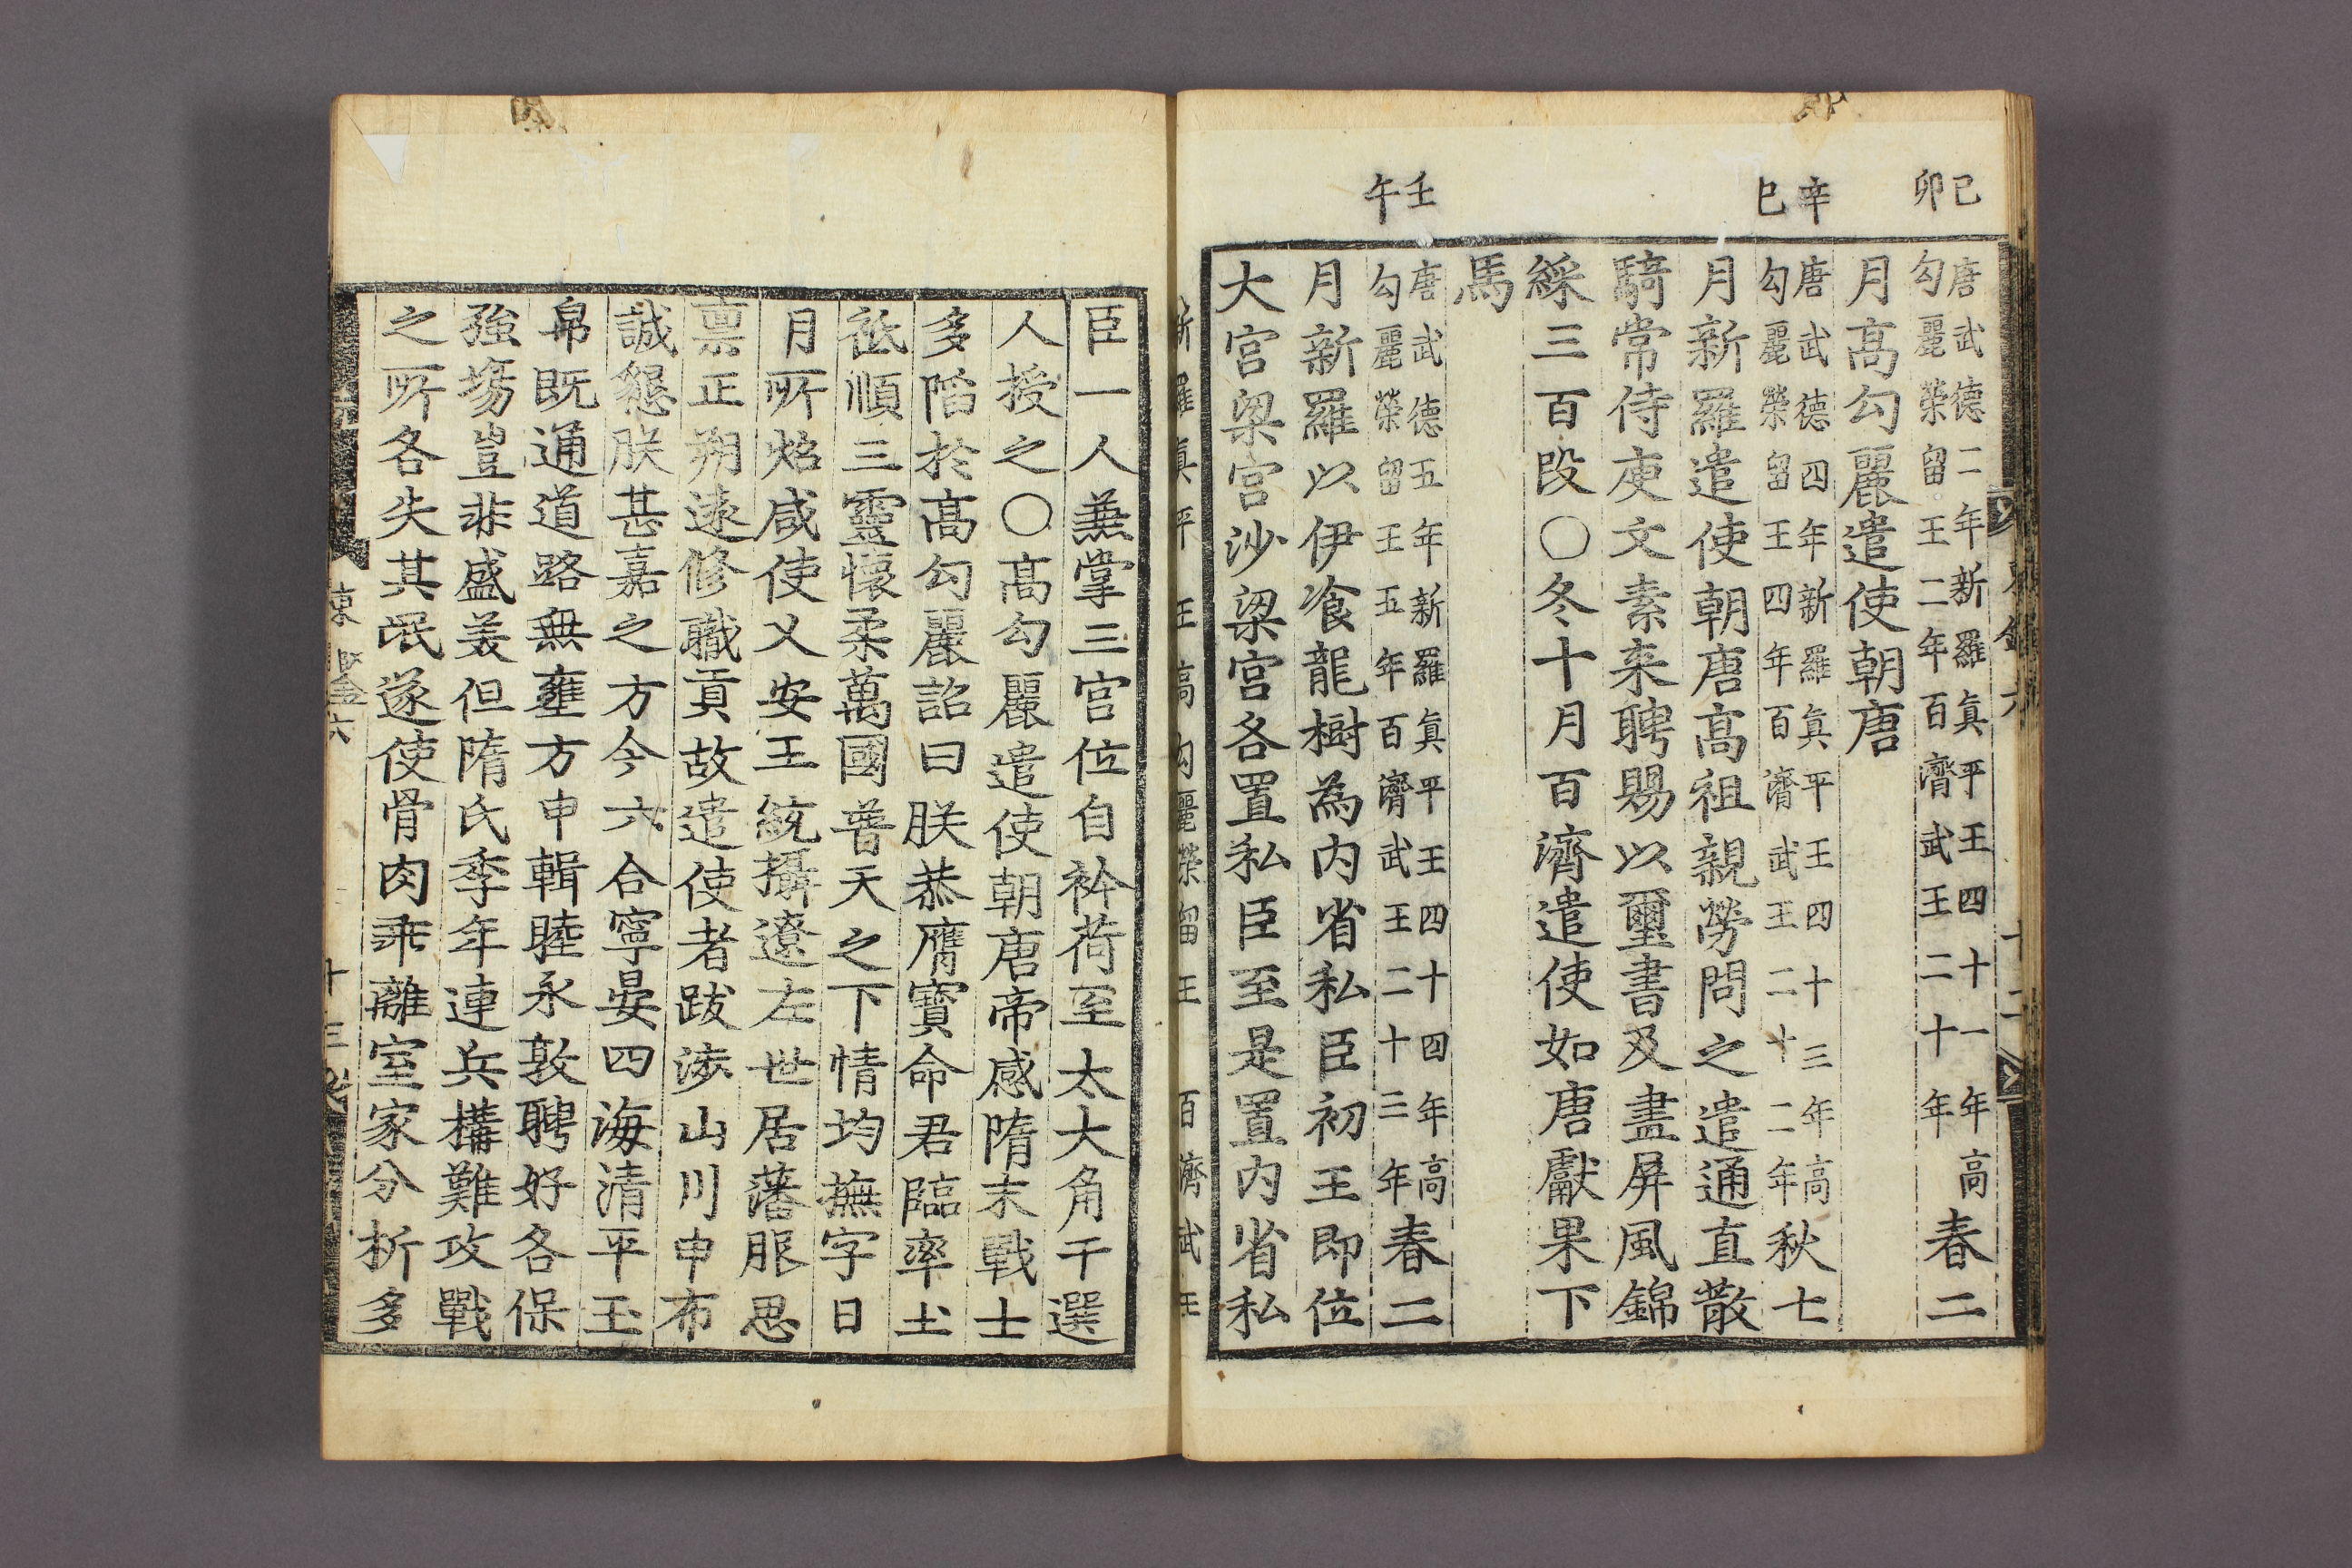 己卯
唐武德二年新羅眞平王四十一年高
勾麗榮留王二年百濟武王二十年
春二
月高勾麗遣使朝唐
辛巳
唐武德四年新羅眞平王四十三年高
勾麗榮留王四年百濟武王二十二年
秋七
月新羅遣使朝唐高祖親勞問之遣通直散
騎常侍庾文素來聘賜以璽書及畫屏風錦
綵三百段○冬十月百濟遣使如唐獻果下
馬
壬午
唐武德五年新羅眞平王四十四年高
勾麗榮留王五年百濟武王二十三年
春二
月新羅以伊飡龍樹為內省私臣初王即位
大宮梁宮沙梁宮各置私臣至是置內省私
新羅眞平王 高勾麗榮留王 百濟武王
臣一人兼掌三宮位自衿荷至太大角干選
人授之○高勾麗遣使朝唐帝感隋末戰士
多陷於高勾麗詔曰朕恭膺寶命君臨率土
祗順三靈懷柔萬國普天之下情均撫字日
月所炤咸使乂安王統攝遼左世居藩服思
禀正朔遠修職貢故遣使者跋涉山川申布
誠懇朕甚嘉之方今六合寧晏四海清平玉
帛既通道路無壅方申輯睦永敦聘好各保
疆場豈非盛美但隋氏季年連兵構難攻戰
之所各失其氓遂使骨肉乖離室家分析多
東 鑑六
十三